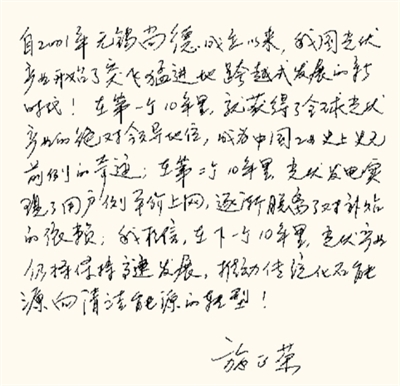 自2001年无锡尚德成立以来，我国光伏
产业开始了突飞猛进地跨越式发展的新
时代！在第一个10年里，就获得了全球光伏
产业的绝对领导地位，成为中国工业史上史无
前例的奇迹；在第二个10年里，光伏发电实
现了用户侧平价上网，逐渐脱离了对补贴
的依赖；我相信，在下一个10年里，光伏产业
仍将保持高速发展，推动传统化石能
源向清洁能源的转型！
施正荣